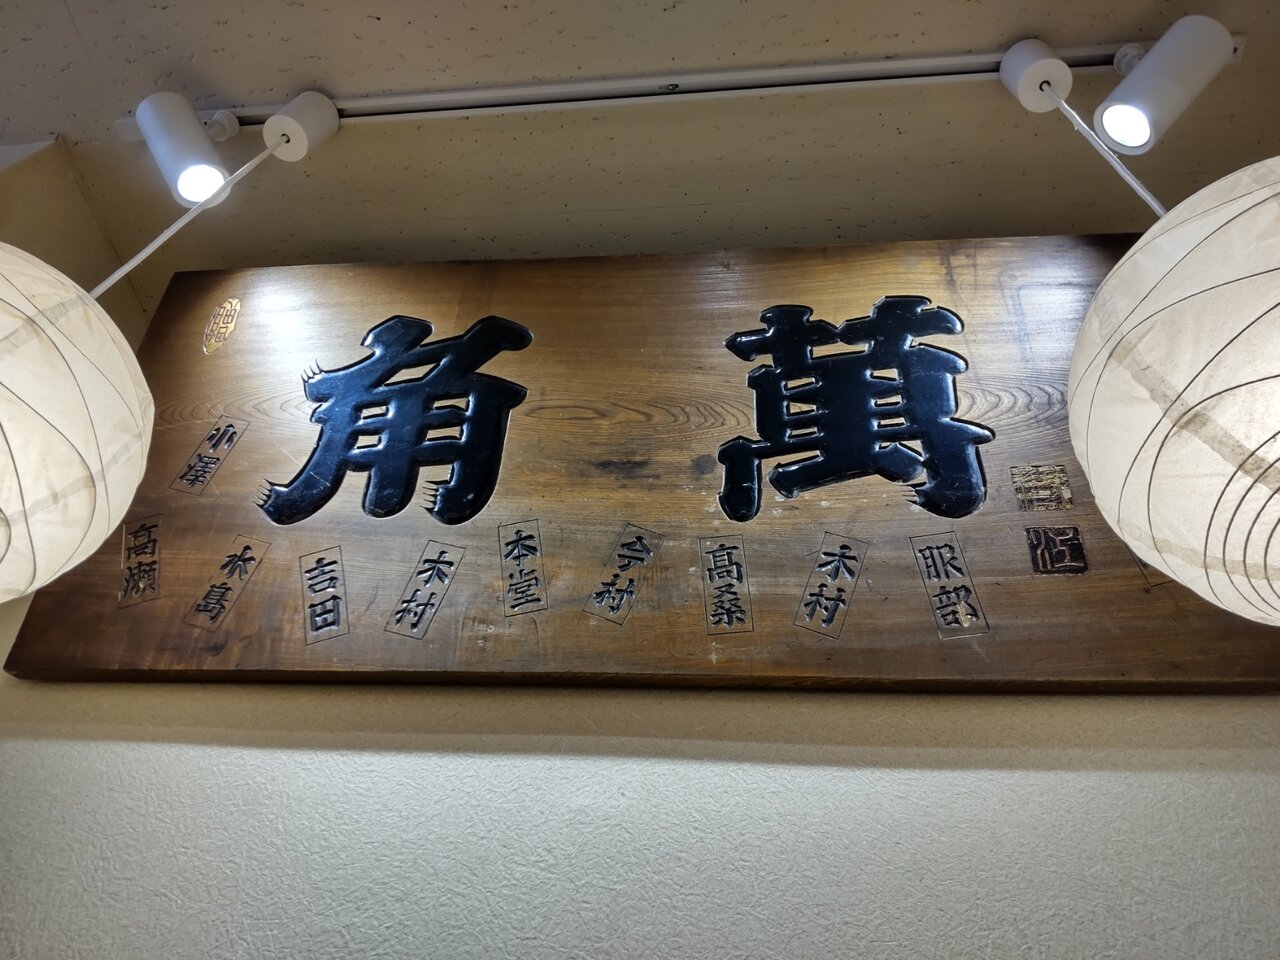 萬角
服部
木村
高桑
今村
本堂
木村
吉田
米島
高瀬
小澤